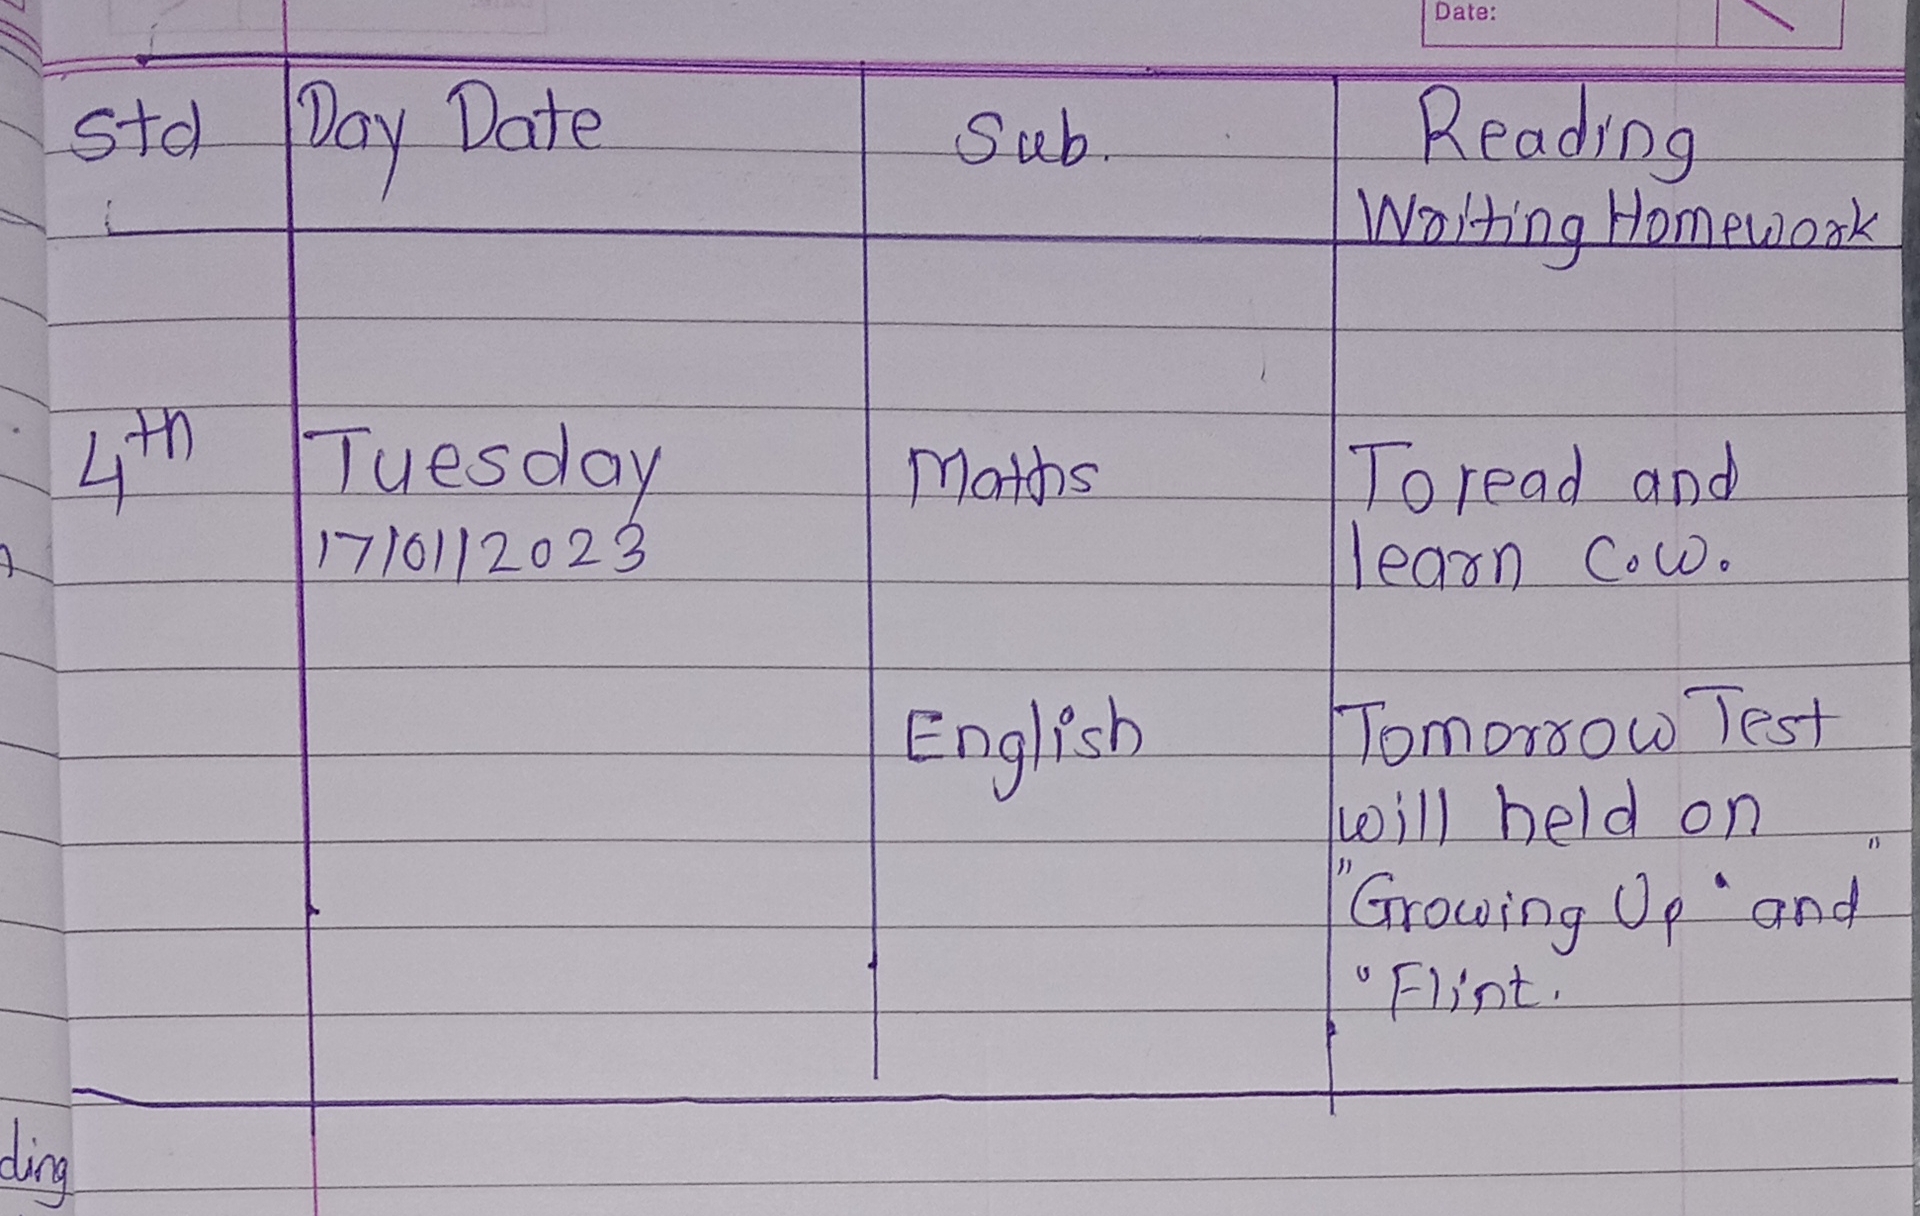 Date:
Std Day Date Sub. Reading
Writing Homework
4th Tuesday Maths To read and
17/01/2023 learn C.W.
English Tomorrow Test
will held on
"Growing Up" and "
"Flint.
ding